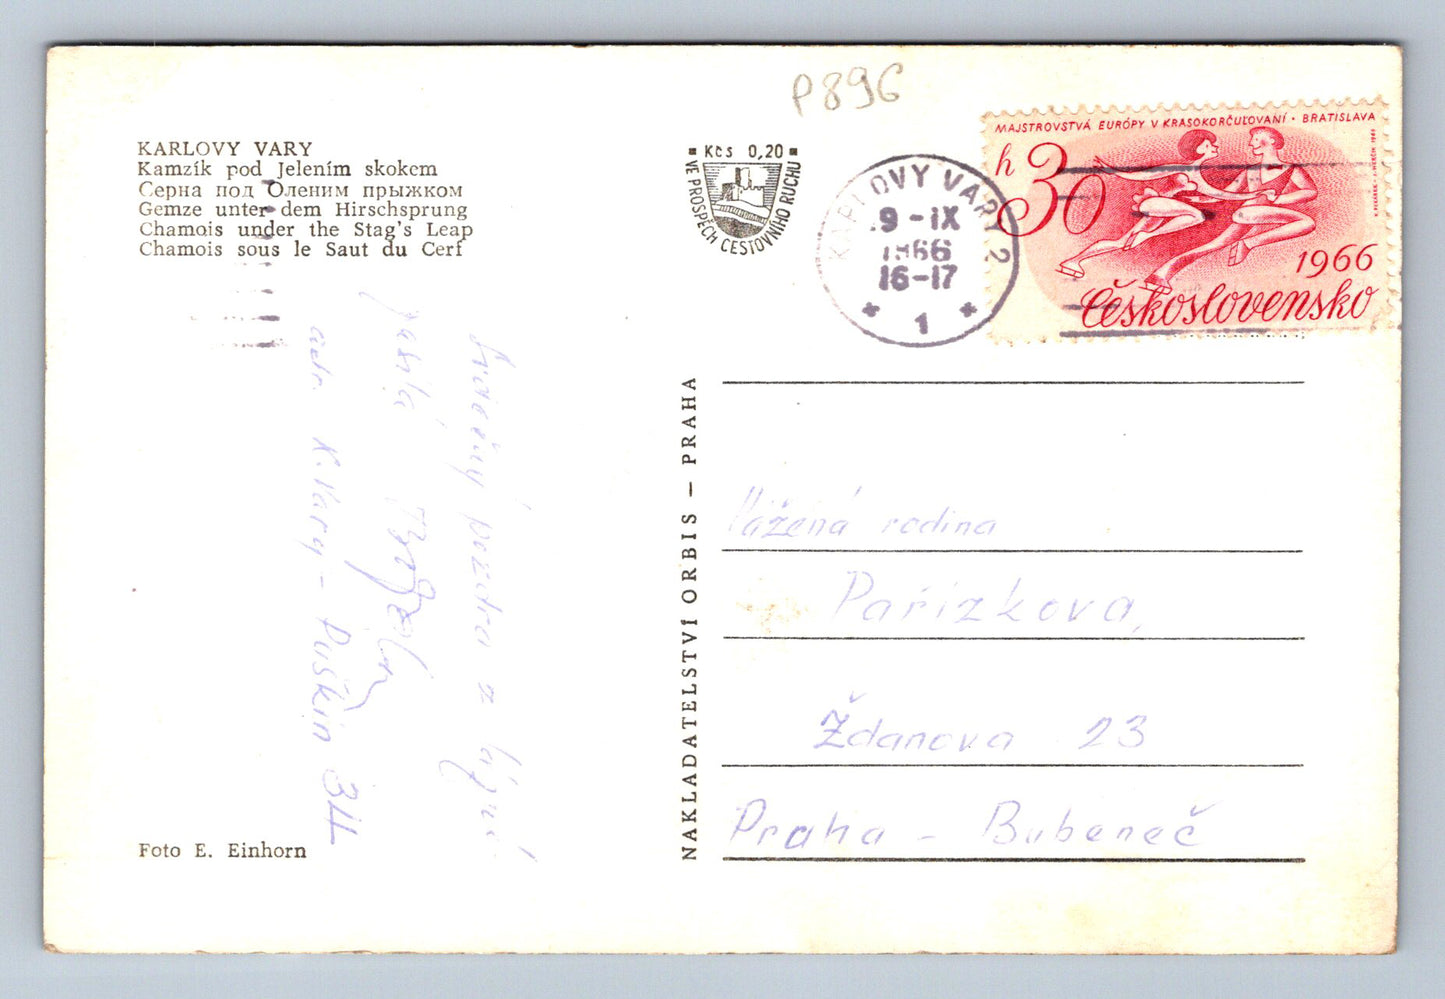 P896
KARLOVY VARY
Kamzík pod Jelením skokem
Серна под Оленим прыжком
Gemze unter dem Hirschsprung
Chamois under the Stag's Leap
Chamois sous le Saut du Cerf
Kčs 0,20
VE PROSPĚCH CESTOVNÍHO RUCHU
KARLOVY VARY 2
9-IX
1966
16-17
1
MAJSTROVSTVÁ EURÓPY V KRASOKORČUĽOVANÍ · BRATISLAVA
h 30
1966
Československo
Srdečný pozdrav z lázní
adr. K. Vary - Puškin 34
NAKLADATELSTVÍ ORBIS — PRAHA
Vážená rodina
Pařízkova,
Ždanova 23
Praha - Bubeneč
Foto E. Einhorn